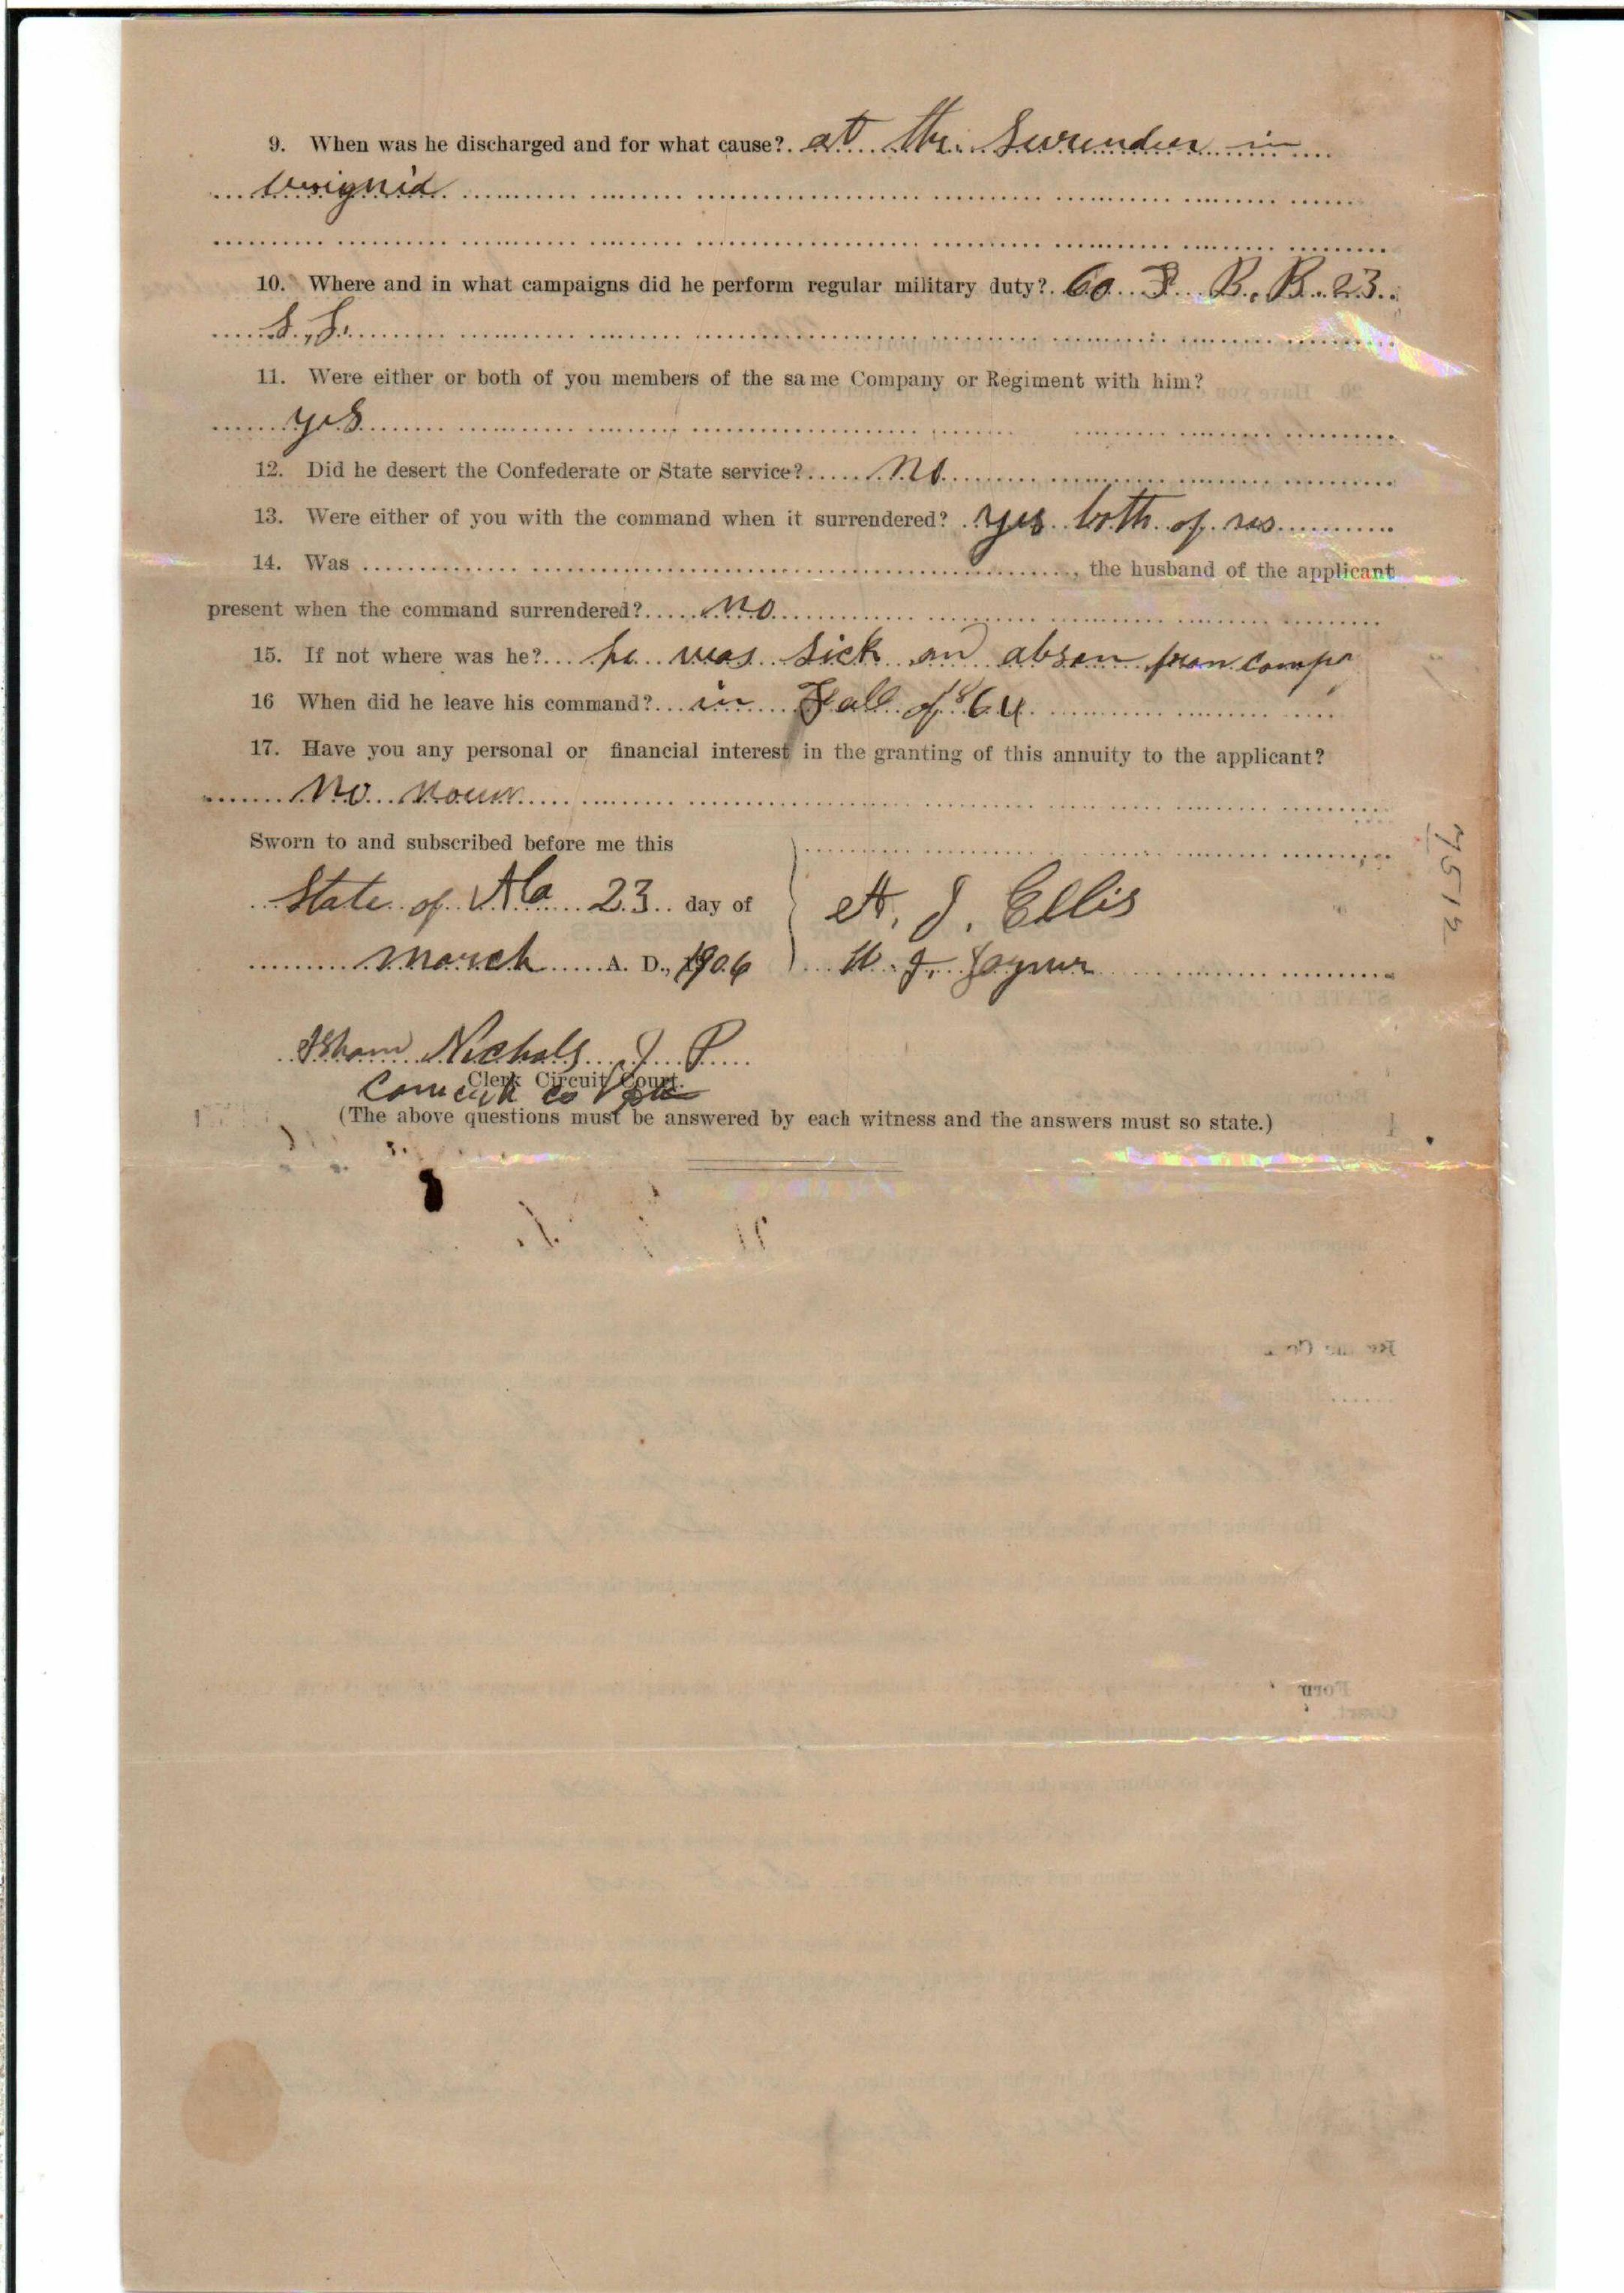 9. When was he discharged and for what cause? at the Surender in
10. Where and in what campaigns did he perform regular military duty? Co F B. B. 23
S. S.
11. Were either or both of you members of the same Company or Regiment with him?
yes
12. Did he desert the Confederate or State service? no
13. Were either of you with the command when it surrendered? yes both of us
14. Was , the husband of the applicant
present when the command surrendered? no
15. If not where was he? he was sick an absen from comp
16 When did he leave his command? in Fall of 1864
17. Have you any personal or financial interest in the granting of this annuity to the applicant?
no noun
Sworn to and subscribed before me this
State of Ala 23 day of
A. J. Ellis
march A. D., 1906
W. J. Joyner
Isham Nichols J P
Clerk Circuit Court.
Conecuh co
(The above questions must be answered by each witness and the answers must so state.)
7512